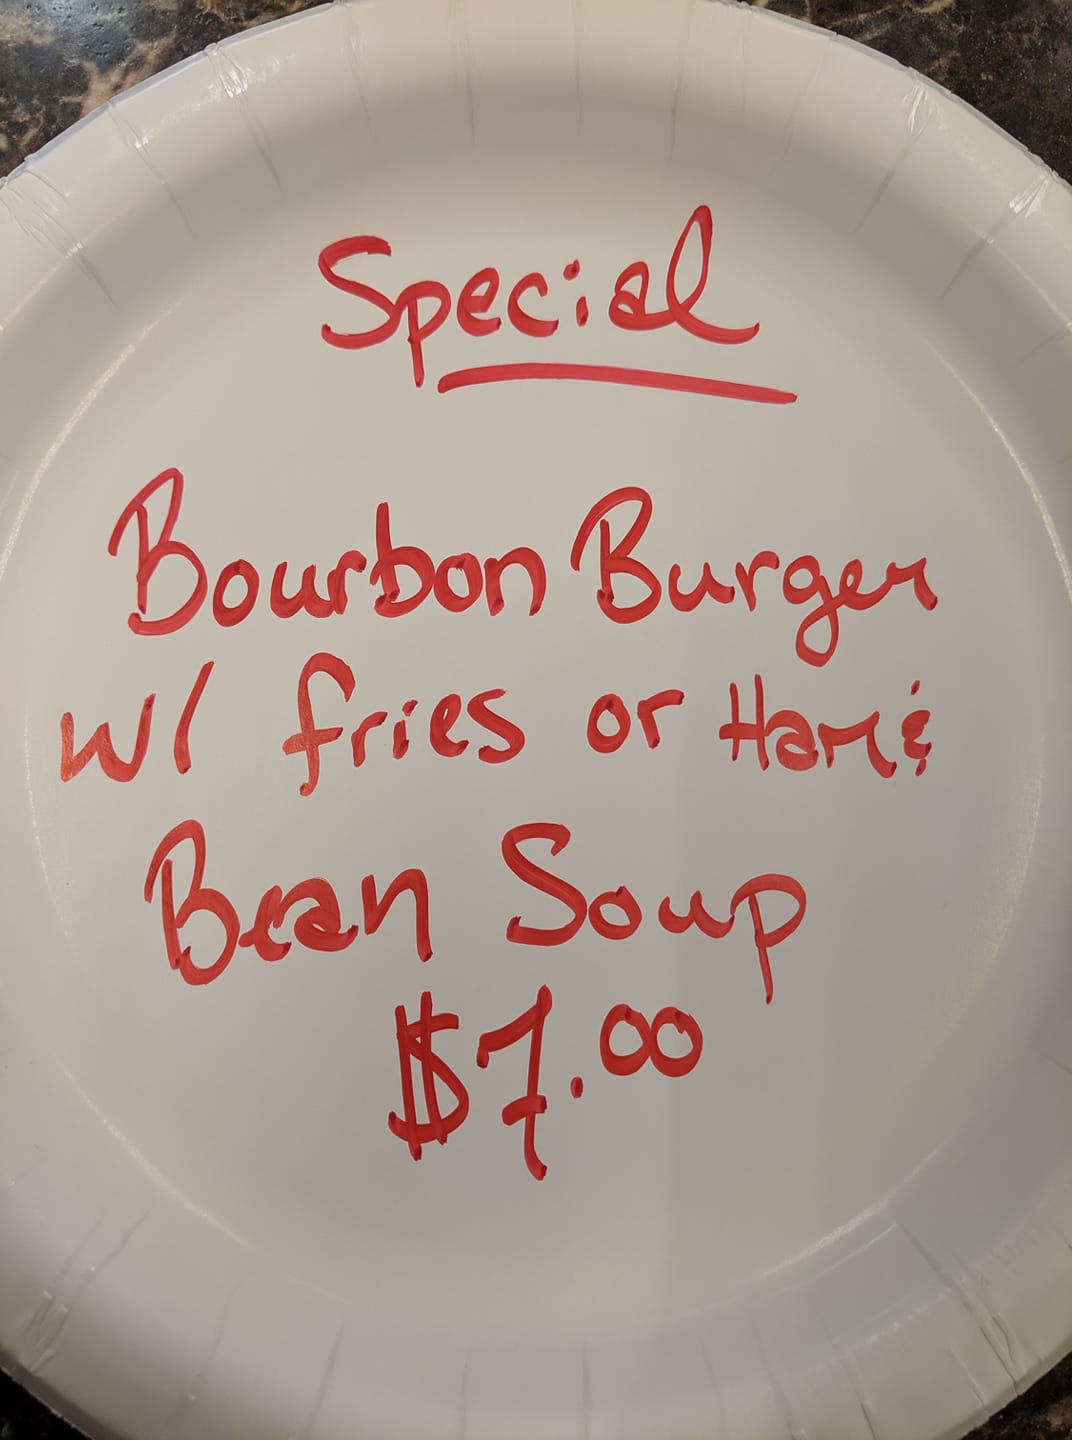 Special
Bourbon Burger
w/ fries or Ham &
Bean Soup
$7.00